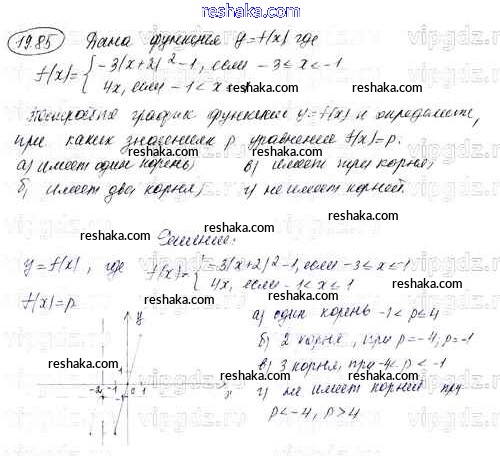 reshaka.com
19.85 Дана функция y=f(x) где
f(x)={-3(x+2)²-1, если -3≤x≤-1
4x, если -1<x≤1
reshaka.com
Постройте график функции y=f(x) и определите,
при каких значениях p уравнение f(x)=p.
reshaka.com
а) имеет один корень, в) имеет три корня;
б) имеет два корня; г) не имеет корней.
reshaka.com reshaka.com
reshaka.com
Решение:
reshaka.com
y=f(x), где f(x)={-3(x+2)²-1, если -3≤x≤-1
4x, если -1<x≤1
reshaka.com
f(x)=p
reshaka.com reshaka.com
y
а) один корень -1<p≤4
б) 2 корня, при p=-4, p=-1
reshaka.com reshaka.com
в) 3 корня, при -4<p<-1
-2 -1 0 1 x
г) не имеет корней при
reshaka.com
p<-4, p>4
reshaka.com